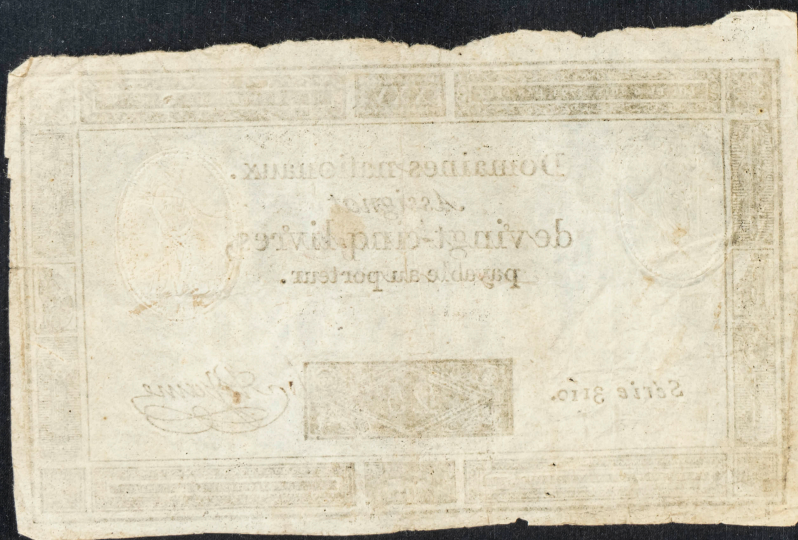 Domaines nationaux.
Assignat
de vingt-cinq livres,
payable au porteur.
Série 3110.